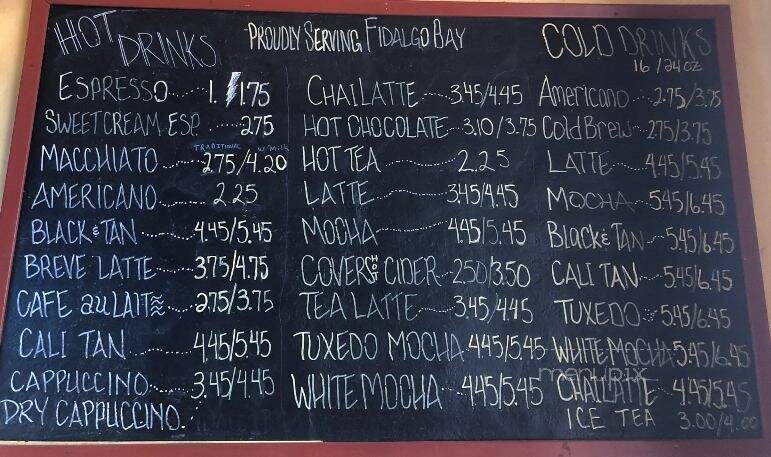 HOT DRINKS
ESPRESSO 1. /1.75
SWEETCREAM ESP. 2.75
TRADITIONAL w/Milk
MACCHIATO 2.75/4.20
AMERICANO 2.25
BLACK & TAN 4.45/5.45
BREVE LATTE 3.75/4.75
CAFE au LAIT 2.75/3.75
CALI TAN 4.45/5.45
CAPPUCCINO 3.45/4.45
DRY CAPPUCCINO
PROUDLY SERVING FIDALGO BAY
CHAI LATTE 3.45/4.45
HOT CHOCOLATE 3.10/3.75
HOT TEA 2.25
LATTE 3.45/4.45
MOCHA 4.45/5.45
COVERS HOT CIDER 2.50/3.50
TEA LATTE 3.45/4.45
TUXEDO MOCHA 4.45/5.45
WHITE MOCHA 4.45/5.45
COLD DRINKS
16/24oz
Americano 2.75/3.75
Cold Brew 2.75/3.75
LATTE 4.45/5.45
MOCHA 5.45/6.45
Black & TAN 5.45/6.45
CALI TAN 5.45/6.45
TUXEDO 5.45/6.45
WHITE MOCHA 5.45/6.45
menupix
CHAI LATTE 4.45/5.45
ICE TEA 3.00/4.00